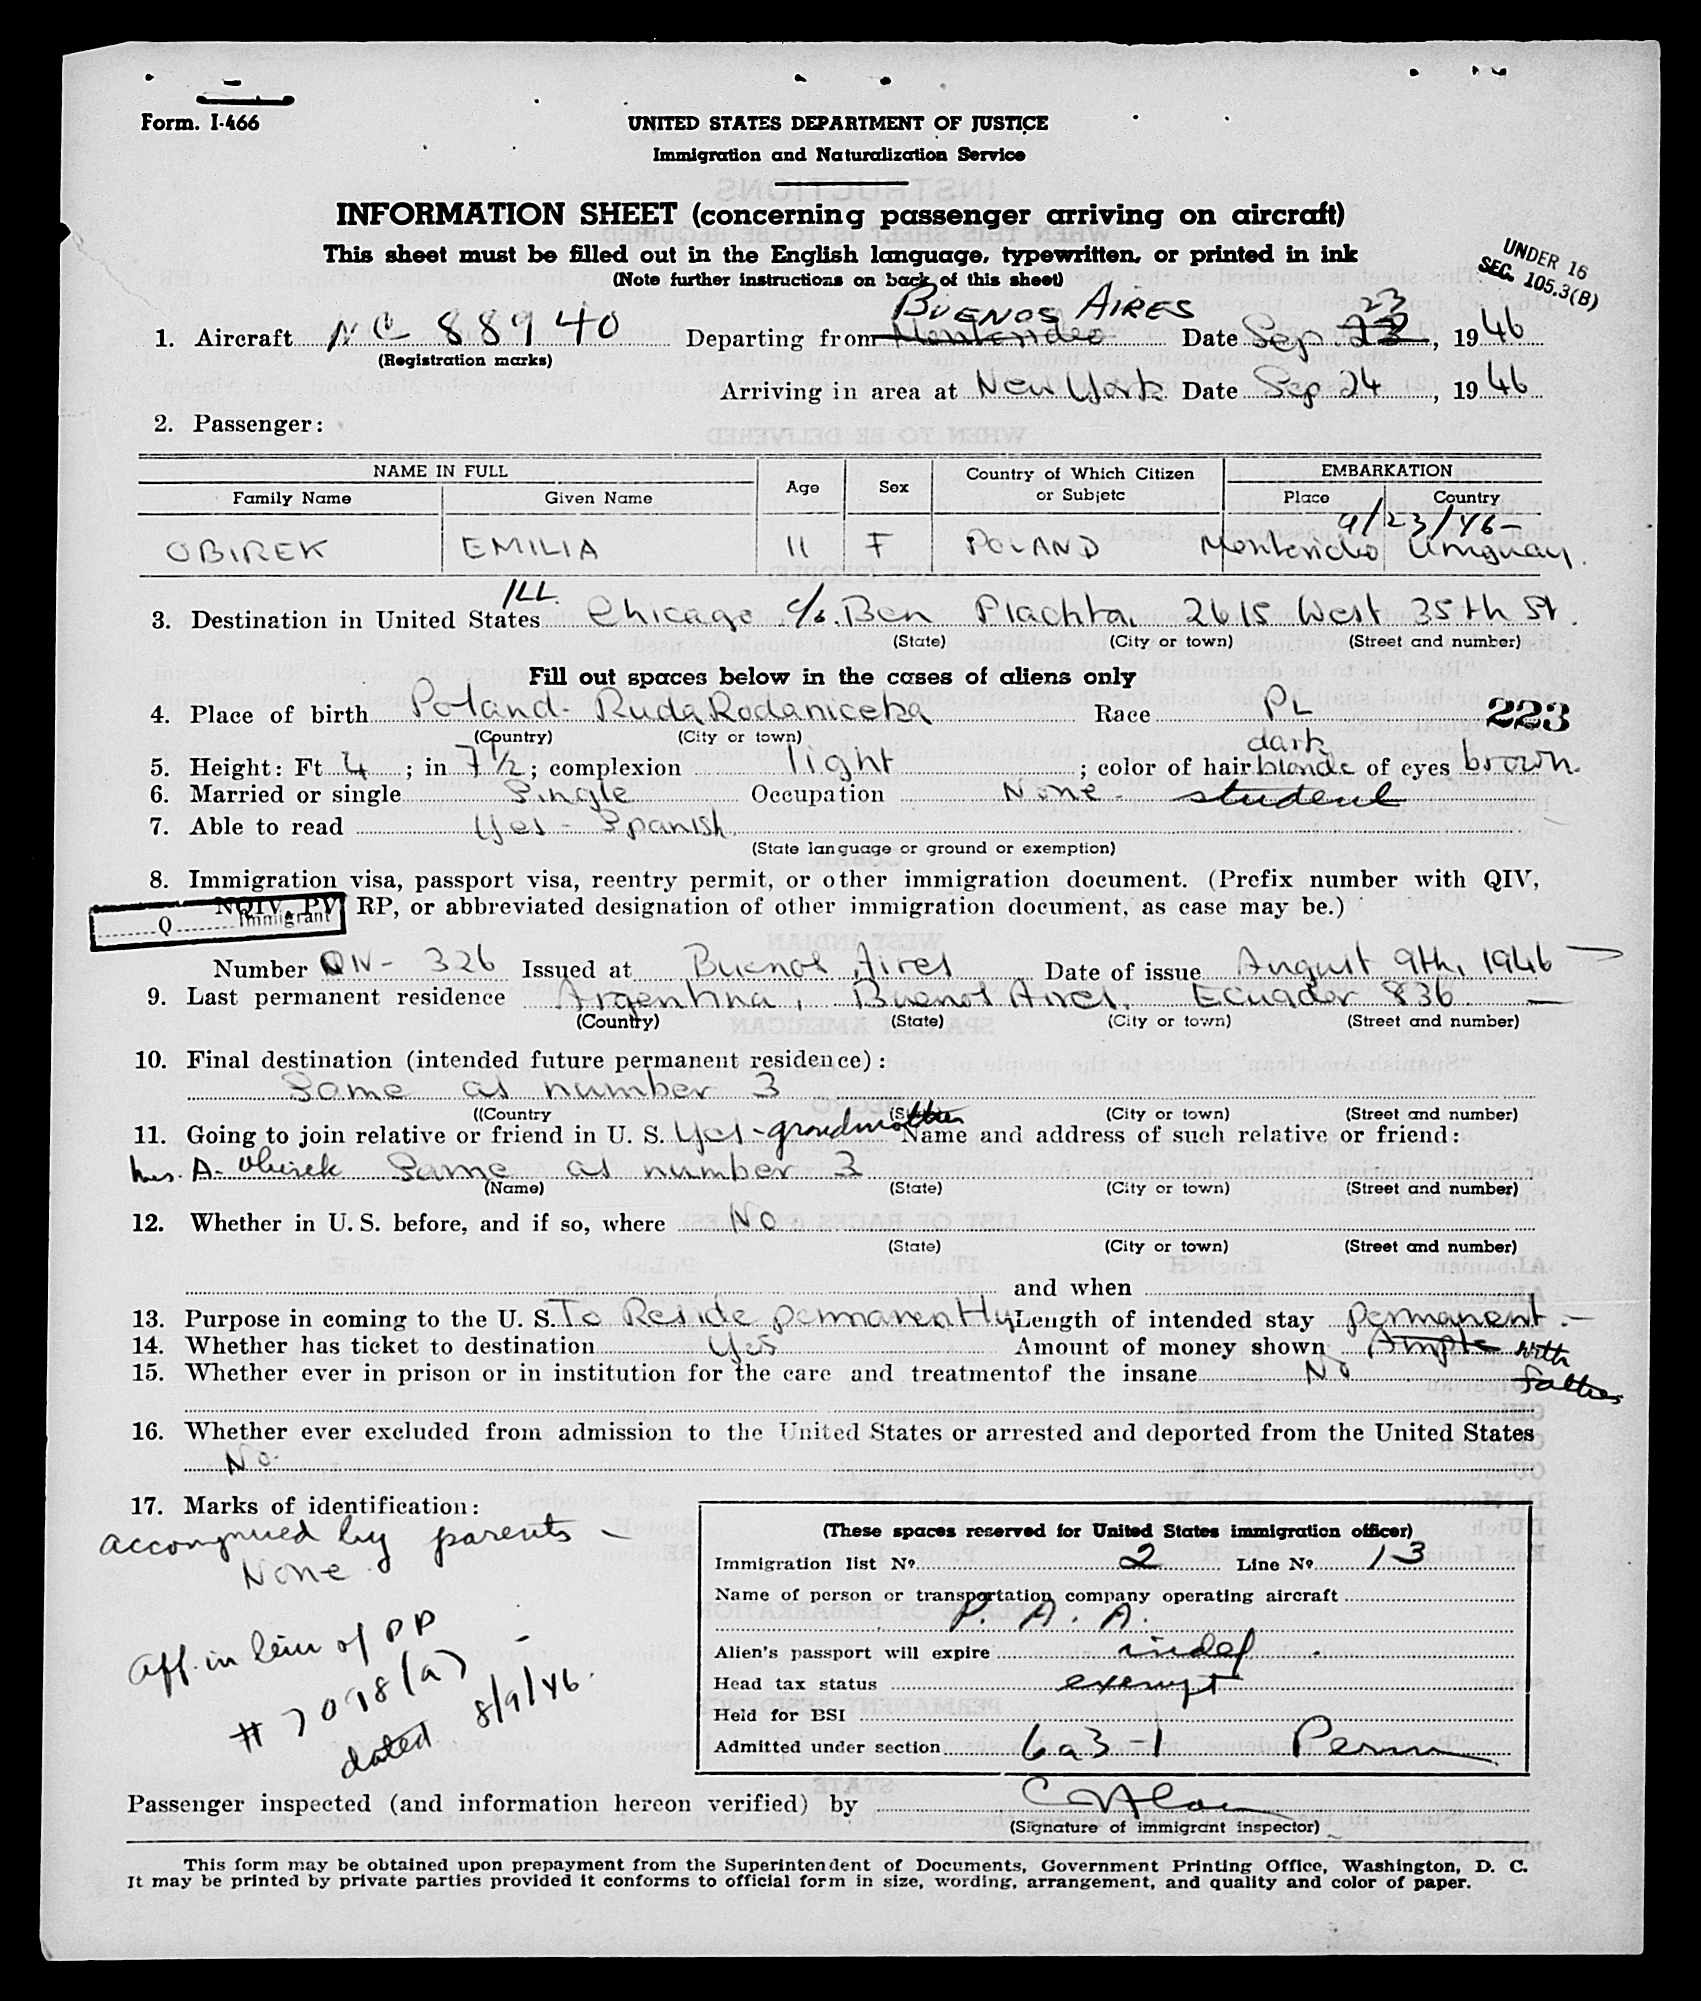 Form. I-466
UNITED STATES DEPARTMENT OF JUSTICE
Immigration and Naturalization Service
INFORMATION SHEET (concerning passenger arriving on aircraft)
This sheet must be filled out in the English language, typewritten, or printed in ink
(Note further instructions on back of this sheet)
UNDER 16
SEC. 105.3(B)
BUENOS AIRES 23
1. Aircraft NC 88940 Departing from Montevideo Date Sep. 22, 1946
(Registration marks)
Arriving in area at New York Date Sep 24, 1946
2. Passenger:
NAME IN FULL Age Sex Country of Which Citizen or Subjetc EMBARKATION
Family Name Given Name Place Country
9/23/46-
OBIREK EMILIA 11 F POLAND Montevideo Uruguay.
ILL.
3. Destination in United States Chicago c/o. Ben Plachta, 2615 West 35th St.
(State) (City or town) (Street and number)
Fill out spaces below in the cases of aliens only
4. Place of birth Poland- Ruda Rodaniceka Race PL 223
(Country) (City or town)
dark
5. Height: Ft 4; in 7 1/2; complexion light; color of hair blonde of eyes brown.
6. Married or single Single Occupation None- student
7. Able to read Yes - Spanish.
(State language or ground or exemption)
8. Immigration visa, passport visa, reentry permit, or other immigration document. (Prefix number with QIV,
NQIV, PV, RP, or abbreviated designation of other immigration document, as case may be.)
Q Immigrant
Number QIV- 326 Issued at Buenos Aires Date of issue August 9th, 1946
9. Last permanent residence Argentina, Buenos Aires, Ecuador 836
(Country) (State) (City or town) (Street and number)
10. Final destination (intended future permanent residence):
Same as number 3
((Country (State) (City or town) (Street and number)
11. Going to join relative or friend in U. S. Yes - grandmother Name and address of such relative or friend:
Mrs. A. Obirek Same as number 3
(Name) (State) (City or town) (Street and number)
12. Whether in U. S. before, and if so, where No.
(State) (City or town) (Street and number)
and when
13. Purpose in coming to the U. S. To Reside permanently Length of intended stay permanent -
14. Whether has ticket to destination Yes Amount of money shown Ample with
father
15. Whether ever in prison or in institution for the care and treatmentof the insane No
16. Whether ever excluded from admission to the United States or arrested and deported from the United States
No.
17. Marks of identification:
accompnied by parents -
None.
Aff. in lieu of PP -
# 7098(a)
dated 8/9/46.
(These spaces reserved for United States immigration officer)
Immigration list Nº 2 Line Nº 13
Name of person or transportation company operating aircraft
P. A. A.
Alien's passport will expire indef.
Head tax status exempt
Held for BSI
Admitted under section 6a3-1 Perm
Passenger inspected (and information hereon verified) by
(Signature of immigrant inspector)
This form may be obtained upon prepayment from the Superintendent of Documents, Government Printing Office, Washington, D. C.
It may be printed by private parties provided it conforms to official form in size, wording, arrangement, and quality and color of paper.